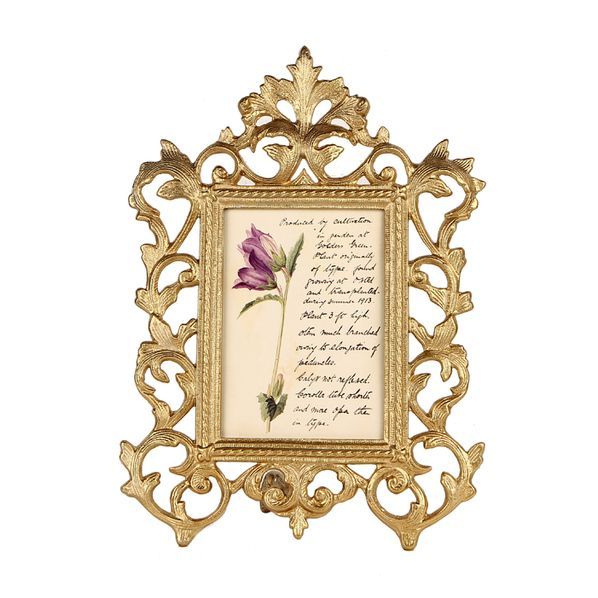 Produced by cultivation
in garden at
Golders Green.
Plant originally
of type found
growing at
and transplanted
during summer 1913.
Plant 3 ft high
often much branched
owing to elongation of
peduncles.
Calyx not reflexed.
Corolla tube shorter
and more open the
in type.